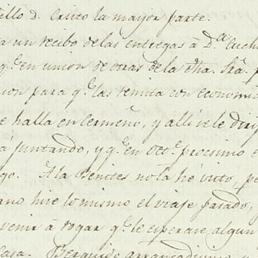 illo D. Cristo la mayor parte.
a un recibo de las entregas a D.ª
q.e en union de otras de la dha. Sra. p
cion para q.e las remita con economi
e halla en Cermeño, y alli se le diri
a juntando, y q.e en oct.e proximo e
go. A la Benites no la he visto, pe
ano hise lo mismo el viaje pasado,
venir a rogar q.e le esperase algun
casa.